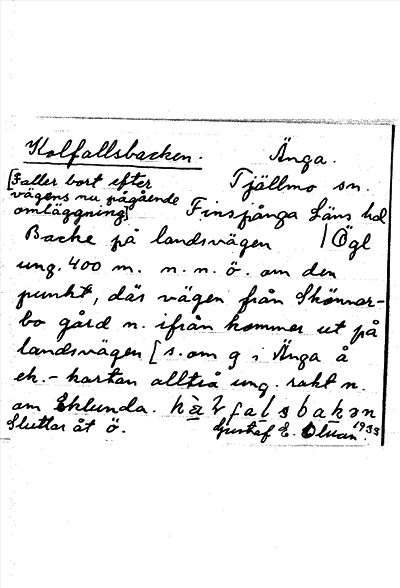 Kolfallsbacken. Änga.
[Faller bort efter Tjällmo sn.
vägens nu pågående
omläggning] Finspånga Läns hd
Backe på landsvägen / Ögl
ung. 400 m. n. n. ö. om den
punkt, där vägen från Skönnar-
bo gård n. ifrån kommer ut på
landsvägen [s. om g i Änga å
ek.-kartan alltså ung. rakt n.
om Eklunda.
Sluttar åt ö. Gustaf E. 1933